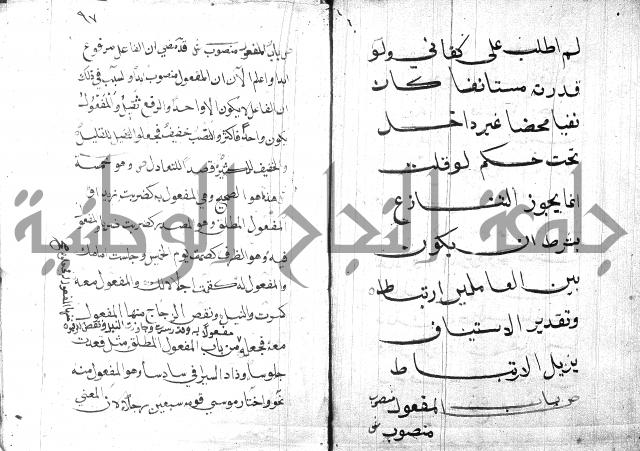 لم اطلب على كفاني ولو
قدرته مستانفا كان
نفيا محضا غير داخل
تحت حكم لو قلت
انما يجوز التنازع
بشرط ان يكون
بين العاملين ارتباط
وتقدير الاستيناف
يزيل الارتباط
ص باب المفعول منصوب
منصوب ش
٩٧
ص باب المفعول منصوب ش قد مضى ان الفاعل مرفوع
ابدا واعلم الآن ان المفعول منصوب ابدا والسبب في ذلك
ان الفاعل لا يكون الا واحدا والرفع ثقيل والمفعول
يكون واحدا فاكثر والنصب خفيف فجعلوا الثقيل للقليل
والخفيف للكثير قصدا للتعادل ص وهو خمسة
هذا هو الصحيح وهي المفعول به كضربت زيدا
المفعول المطلق وهو المصدر كضربت ضربا والمفعول
فيه وهو الظرف كصمت يوم الخميس وجلست امامك
والمفعول له كقمت اجلالا لك والمفعول معه
كسرت والنيل ونقص الزجاج منها المفعول
معه فجعله مفعولا به
من باب المفعول المطلق مثل قعدت
جلوسا وزاد السيرافي سادسا وهو المفعول منه
نحو واختار موسى قومه سبعين رجلا لان المعنى
جامعة النجاح الوطنية